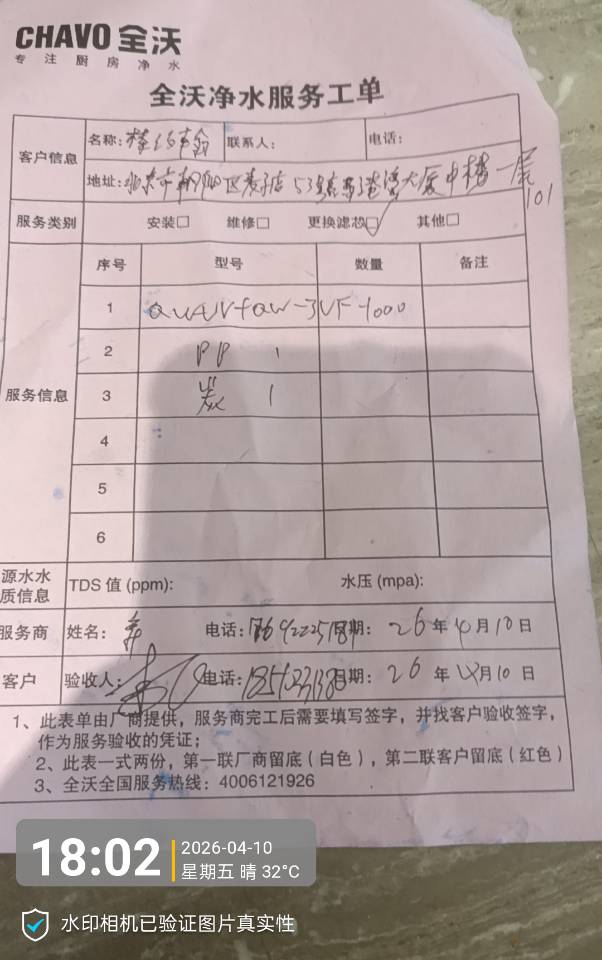 CHAVO 全沃
专注厨房净水
全沃净水服务工单
客户信息
名称: 联系人: 电话:
地址:北京市朝阳区 53号 大厦中楼一层
101
服务类别 安装□ 维修□ 更换滤芯□ 其他□
服务信息
序号 型号 数量 备注
1 -3VF-1000
2 PP 1
3 炭 1
4
5
6
源水水质信息 TDS 值 (ppm): 水压 (mpa):
服务商 姓名: 电话: 日期: 26 年 4 月 10 日
客户 验收人: 电话: 日期: 26 年 4 月 10 日
1、此表单由厂商提供，服务商完工后需要填写签字，并找客户验收签字，
作为服务验收的凭证；
2、此表一式两份，第一联厂商留底（白色），第二联客户留底（红色）
3、全沃全国服务热线：4006121926
18:02
2026-04-10
星期五 晴 32°C
水印相机已验证图片真实性